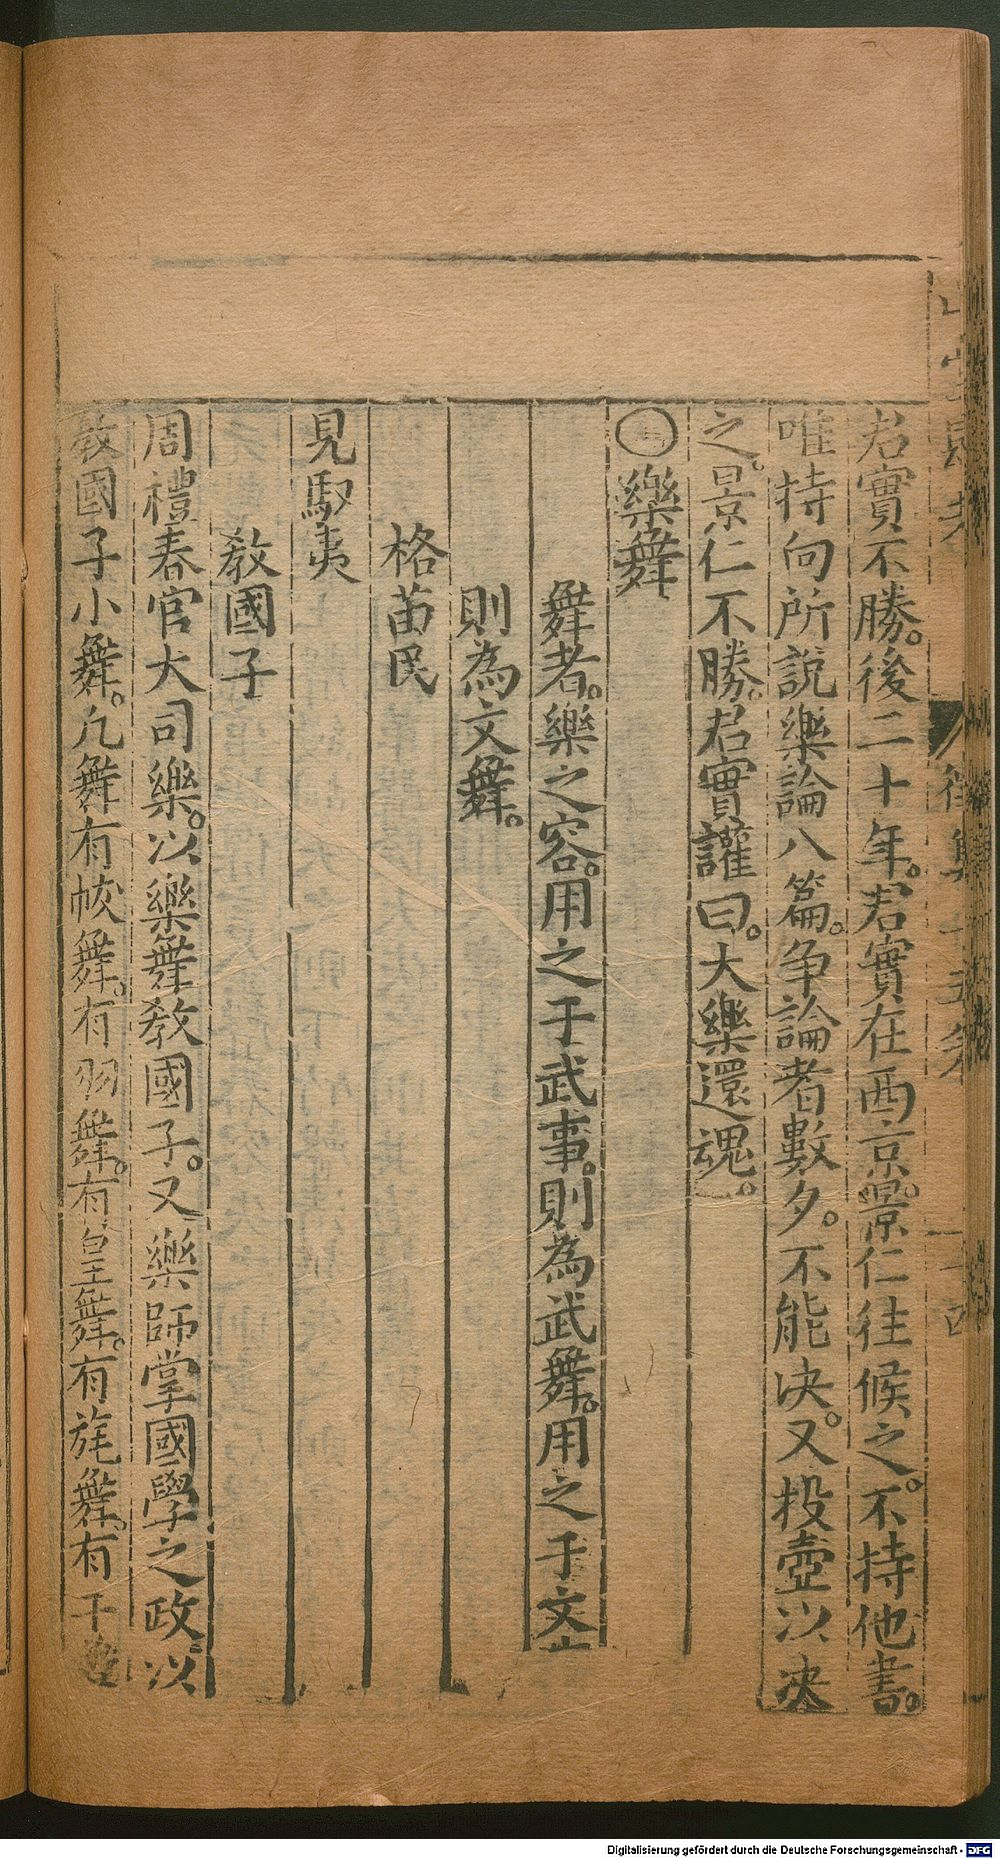 君實不勝。後二十年。君實在西京。景仁往候之。不持他書。
唯持向所說樂論八篇。争論者數夕。不能决。又投壺以决
之。景仁不勝。君實讙曰。大樂還魂。
樂舞
舞者。樂之容。用之于武事。則為武舞。用之于文
則為文舞。
格苗民
見馭夷
教國子
周禮春官大司樂。以樂舞教國子。又樂師掌國學之政。以
教國子小舞。凢舞有帗舞。有羽舞。有皇舞。有旄舞。有干
Digitalisierung gefördert durch die Deutsche Forschungsgemeinschaft - DFG